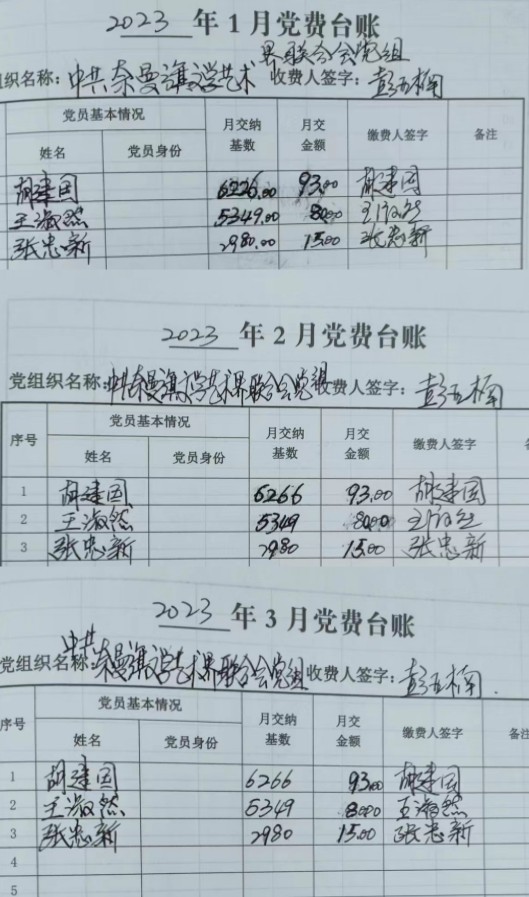 2023 年1月党费台账
界联合会党组
组织名称：中共奈曼旗文学艺术 收费人签字：彭
党员基本情况 月交纳基数 月交金额 缴费人签字 备注
姓名 党员身份
胡建国 6226.00 93.00 胡建国
王淑然 5349.00 80.00 王淑然
张忠新 2980.00 15.00 张忠新
2023 年2月党费台账
党组织名称：中共奈曼旗文学艺术界联合会党组 收费人签字：彭
序号 党员基本情况 月交纳基数 月交金额 缴费人签字
姓名 党员身份
1 胡建国 6266 93.00 胡建国
2 王淑然 5349 80.00 王淑然
3 张忠新 2980 15.00 张忠新
2023 年3月党费台账
中共
党组织名称：奈曼旗文学艺术界联合会党组 收费人签字：彭
序号 党员基本情况 月交纳基数 月交金额 缴费人签字 备注
姓名 党员身份
1 胡建国 6266 93.00 胡建国
2 王淑然 5349 80.00 王淑然
3 张忠新 2980 15.00 张忠新
4
5